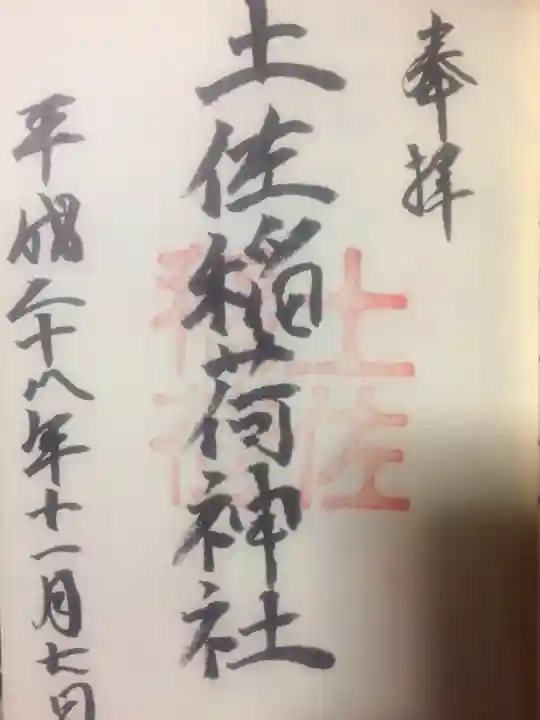 奉拝
土佐稲荷神社
土佐稲荷
平成二十八年十一月七日